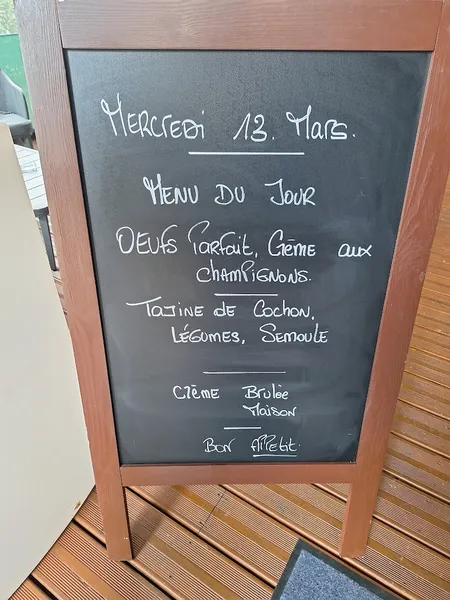 Mercredi 13. Mars.
Menu du Jour
Oeufs Parfait, Crème aux
champignons.
Tajine de Cochon,
Légumes, Semoule
Crème Brulée
Maison
Bon Appetit.